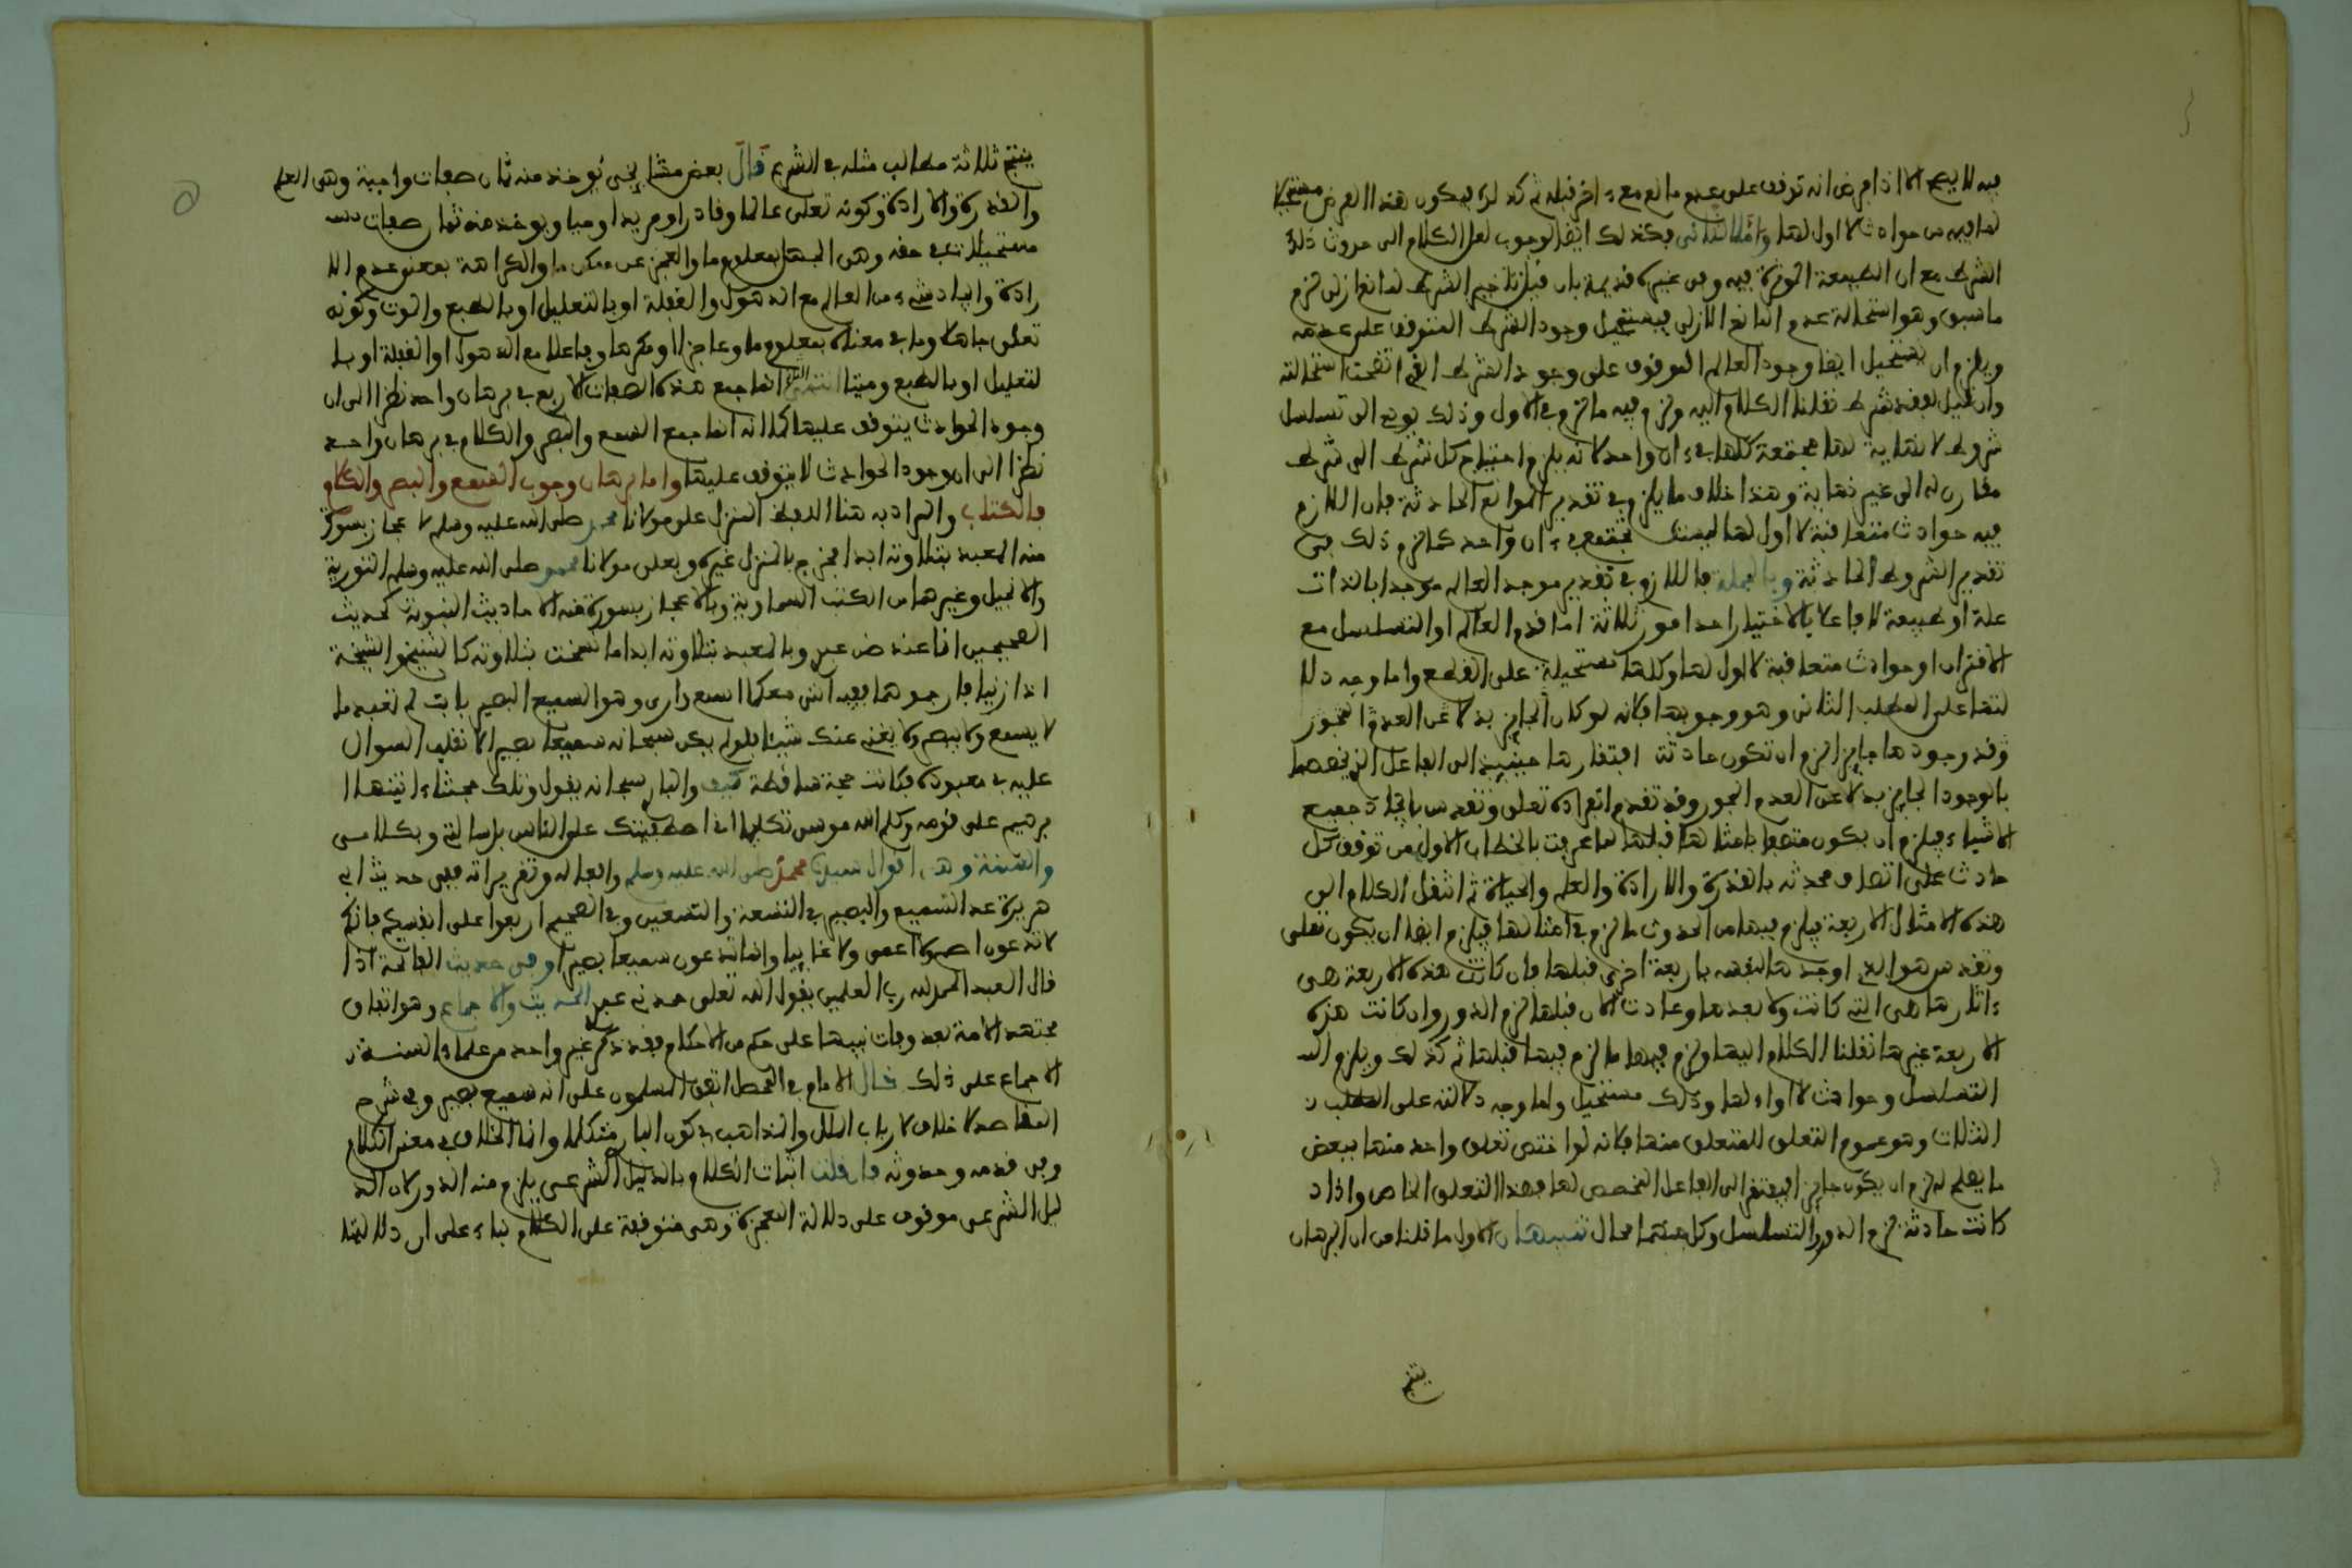 فيه لا يصح الا اذا فرض انه توقف على عدم مانع مع ءاخر قبله ثم كذلك فيكون هذا الفرض مستحيلا
لما فيه من حوادث لا اول لها واما الثاني فكذلك ايضا لوجوب نقل الكلام الى حدوث ذلك
الشرط مع ان الطبيعة الموثرة فيه وفي غيره قديمة بان قيل تاخير الشرط لمانع ازلي لزم
ما سبق وهو استحالة عدم المانع الازلي فيستحيل وجود الشرط المتوقف على عدمه
ويلزم ان يستحيل ايضا وجود العالم الموقوف على وجود الشرط الذي اتضحت استحالته
وان قيل لفقد شرط نقلنا الكلام اليه ولزم فيه ما لزم في الاول وذلك يودي الى تسلسل
شروط لا نهاية لها مجتمعة كلها في ءان واحد لانه يلزم احتياج كل شرط الى شرط
مقارن له الى غير نهاية وهذا خلاف ما يلزم في تقدير الموانع الحادثة فان اللازم
فيه حوادث متعاقبة لا اول لها ليست تجتمع في ءان واحد كما لزم ذلك في
تقدير الشروط الحادثة وبالجملة فاللازم في تقدير موجد العالم موجدا بالذات
علة او طبيعة لا فاعلا بالاختيار احد امور ثلاثة اما قدم العالم او التسلسل مع
الاقتران او حوادث متعاقبة لا اول لها وكلها مستحيلة على القطع واما وجه دلا
لتها على المطلب الثاني وهو وجوبها فلانه لو كان الجايز بدلا عن العدم المجوز
وقد وجودها جايزا لزم ان تكون حادثة افتقارها حينيذ الى الفاعل الذي خصصها
بالوجود الجايز بدلا عن العدم المجوز وقد تقدم انفراده تعلى وتقدس بايجاد جميع
الاشياء فيلزم ان يكون متصفا بامثالها قبلها لما عرفت بالخطاب الاول من توقف كل
حادث على اتصاف محدثه بالقدرة والارادة والعلم والحياة ثم انتقل الكلام الى
هذه الامثال الاربعة فيلزم فيها من الحدوث ما لزم في امثالها فيلزم ايضا ان يكون تعلى
وتقدس هو الذي اوجدها لنفسه باربعة اخرى قبلها فان كانت هذه الاربعة هي
ءاثارها هي التي كانت ولا بعدها وعادت الان قبلها لزم الدور وان كانت هذه
الاربعة غيرها نقلنا الكلام اليها ولزم فيها ما لزم فيها قبلها ثم كذلك ويلزم الد
التسلسل وحوادث لا اول لها وذلك مستحيل واما وجه دلالته على المطلب
الثالث وهو عموم التعلق للمتعلق منها فلانه لو اختص تعلق واحد منها ببعض
ما يصلح له لزم ان يكون جايزا فيفتقر الى الفاعل المخصص لها بهذا التعلق الخاص واذا
كانت حادثة لزم الدور او التسلسل وكل منهما محال تنبيهان الاول ما قلنا من ان البرهان
ينتج ثلاثة مطالب مثله في الشرح قال بعض مشايخي يوخذ منه ثمان صفات واجبة وهي العلم
والقدرة والارادة وكونه تعلى عالما وقادرا ومريدا وحيا ويوخذ منه ثمان صفات
مستحيلات في حقه وهي الجهل بمعلوم ما والعجز عن ممكن ما والكراهة بمعنى عدم الا
رادة وايجاد شيء من العالم مع الذهول والغفلة او بالتعليل او بالطبع والموت وكونه
تعلى جاهلا وما في معناه بمعلوم ما وعاجزا او مكرها وفاعلا مع الذهول او الغفلة او با
لتعليل او بالطبع وميتا انما جمع هذه الصفات الاربع في برهان واحد نظرا الى ان
وجود الحوادث يتوقف عليها كما انه انما جمع السمع والبصر والكلام في برهان واحد
نظرا الى ان وجود الحوادث لا يتوقف عليها واما برهان وجوب السمع والبصر والكلام
فالكتاب والمراد به هنا اللفظ المنزل على مولانا محمد صلى الله عليه وسلم لا عجاز بسورة
منه المعبد بتلاوته ابدا فخرج بالمنزل غيره وبعلى مولانا محمد صلى الله عليه وسلم التورية
والانجيل وغيرها من الكتب السماوية وبالاعجاز بسورة منه الاحاديث النبوية كحديث
الصحيحين انا عند ظن عبدي وبالمعبد بتلاوته ابدا ما نسخت بتلاوته كالشيخ والشيخة
اذا زنيا فارجموهما ففيه انني معكما اسمع وارى وهو السميع البصير يا ابت لم تعبد ما
لا يسمع ولا يبصر ولا يغني عنك شيئا فلو لم يكن سبحانه سميعا بصيرا لانقلب السوال
عليه في معبوده فكانت حجة ساقطة كيف والباري سبحانه يقول وتلك حجتنا ءاتيناها ا
برهيم على قومه وكلم الله موسى تكليما اني اصطفيتك على الناس برسالتي وبكلامي
والسنة وهي اقوال سيدنا محمد صلى الله عليه وسلم وافعاله وتقريراته ففي حديث ابي
هريرة عد السميع والبصير في التسعة والتسعين وفي الصحيح اربعوا على انفسكم فانكم
لا تدعون اصم ولا اعمى ولا غايبا وانما تدعون سميعا بصيرا وفي حديث الفاتحة اذا
قال العبد الحمد لله رب العلمين يقول الله تعلى حمدني عبدي الحديث والاجماع وهو اتفاق
مجتهد الامة بعد وفات نبيها على حكم من الاحكام فقد ذكر غير واحد من علماء السنة
الاجماع على ذلك قال الامام في المحصل اتفق المسلمون على انه سميع بصير وفي شرح
المقاصد لا خلاف لارباب الملل والمذاهب في كون الباري متكلما وانما الخلاف في معنى الكلام
وفي قدمه وحدوثه فان قلت اثبات الكلام بالدليل الشرعي يلزم منه الدور لان الد
ليل الشرعي موقوف على دلالة المعجزة وهي متوقفة على الكلام بناء على ان دلالتها